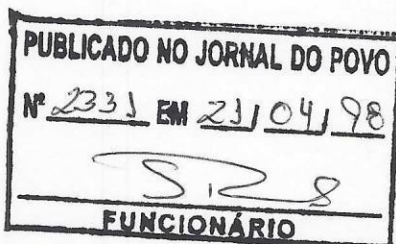 PUBLICADO NO JORNAL DO POVO
Nº 2331 EM 21/04/98
FUNCIONÁRIO